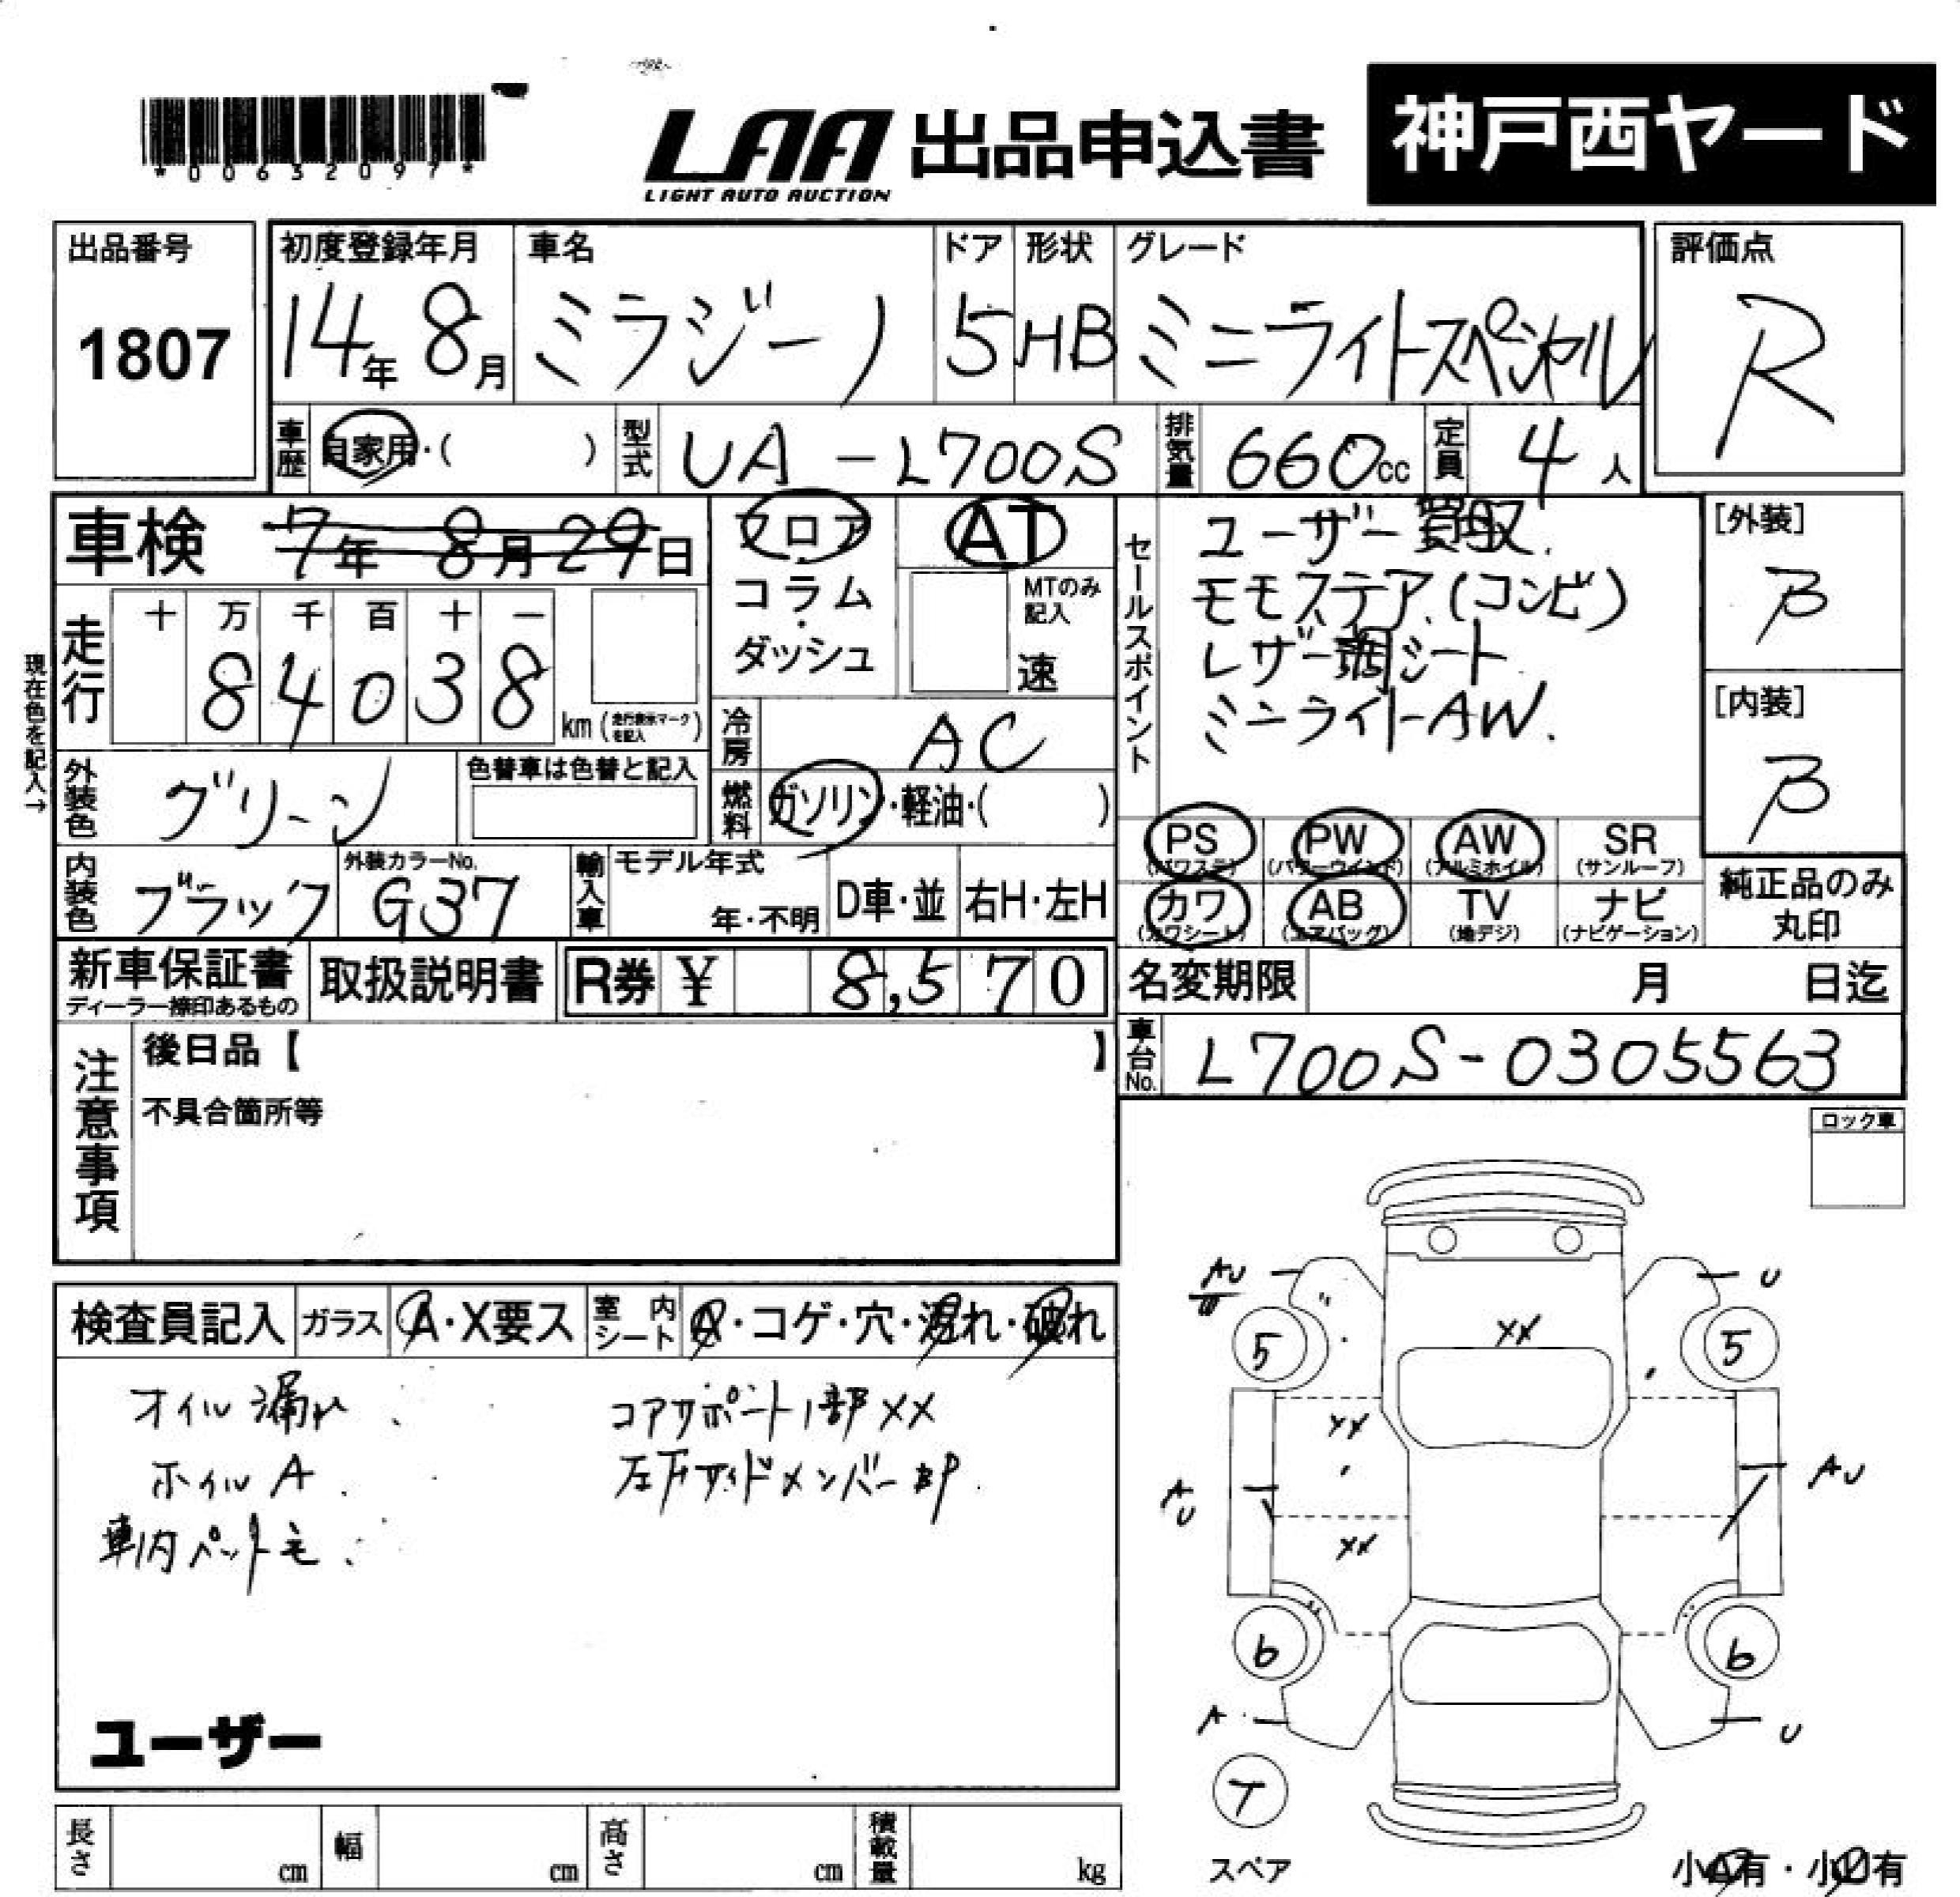 *00632097*
LAA 出品申込書 神戸西ヤード
LIGHT AUTO AUCTION
出品番号 1807
初度登録年月 14年 8月
車名 ミラジーノ
ドア 5
形状 HB
グレード ミニライトスペシャル
評価点 R
車歴 自家用・( )
型式 UA-L700S
排気量 660cc
定員 4人
車検 7年 8月 29日
フロア・コラム・ダッシュ
AT
MTのみ記入
速
セールスポイント
ユーザー買取.
モモステア.(コンビ)
レザー調シート
ミニライトAW.
[外装] B
[内装] B
現在色を記入→
走行 十 万 千 百 十 一
84038 km (走行表示マークを記入)
冷房 AC
外装色 グリーン
色替車は色替と記入
燃料 ガソリン・軽油・( )
内装色 ブラック
外装カラーNo. G37
輸入車 モデル年式 年・不明
D車・並 右H・左H
PS (パワステ)
PW (パワーウインド)
AW (アルミホイル)
SR (サンルーフ)
カワ (カワシート)
AB (エアバッグ)
TV (地デジ)
ナビ (ナビゲーション)
純正品のみ丸印
新車保証書
ディーラー捺印あるもの
取扱説明書
R券 ¥ 8,570
名変期限 月 日迄
車台No. L700S-0305563
注意事項
後日品【 】
不具合箇所等
ロック車
検査員記入
ガラス A・X要ス
室内シート A・コゲ・穴・濡れ・破れ
オイル漏れ
コアサポート1部XX
ホイルA
車内ペット毛
ユーザー
AU
U
5
5
XX
XX
AU
AU
XX
6
6
A
U
T
スペア
小A有・小U有
長さ cm
幅 cm
高さ cm
積載量 kg